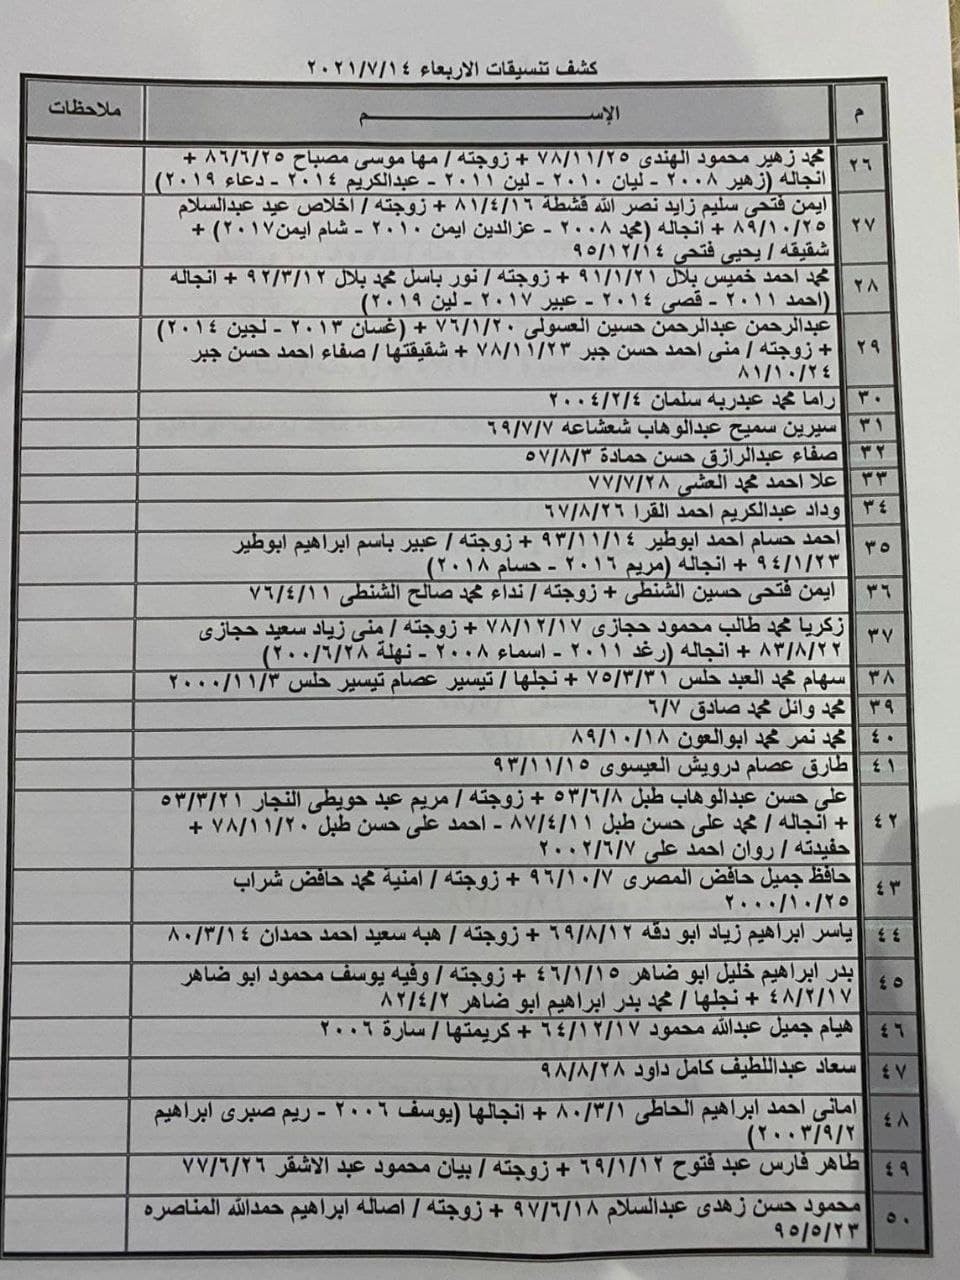 كشف تنسيقات الاربعاء ٢٠٢١/٧/١٤
م الإســـم ملاحظات
٢٦ محمد زهير محمود الهندى ٧٨/١١/٢٥ + زوجته / مها موسى مصباح ٨٦/٦/٢٥ +
انجاله (زهير ٢٠٠٨ - ليان ٢٠١٠ - لين ٢٠١١ - عبدالكريم ٢٠١٤ - دعاء ٢٠١٩)
٢٧ ايمن فتحى سليم زايد نصر الله قشطة ٨١/٤/١٦ + زوجته / اخلاص عيد عبدالسلام
٨٩/١٠/٢٥ + انجاله (محمد ٢٠٠٨ - عزالدين ايمن ٢٠١٠ - شام ايمن٢٠١٧) +
شقيقه / يحيى فتحى ٩٥/١٢/١٤
٢٨ محمد احمد خميس بلال ٩١/١/٢١ + زوجته / نور باسل محمد بلال ٩٢/٣/١٢ + انجاله
(احمد ٢٠١١ - قصى ٢٠١٤ - عبير ٢٠١٧ - لين ٢٠١٩)
٢٩ عبدالرحمن عبدالرحمن حسين العسولى ٧٦/١/٢٠ + (غسان ٢٠١٣ - لجين ٢٠١٤)
+ زوجته / منى احمد حسن جبر ٧٨/١١/٢٣ + شقيقتها / صفاء احمد حسن جبر
٨١/١٠/٢٤
٣٠ راما محمد عبدربه سلمان ٢٠٠٤/٢/٤
٣١ سيرين سميح عبدالوهاب شعشاعه ٦٩/٧/٧
٣٢ صفاء عبدالرازق حسن حمادة ٥٧/٨/٣
٣٣ علا احمد محمد العشى ٧٧/٧/٢٨
٣٤ وداد عبدالكريم احمد القرا ٦٧/٨/٢٦
٣٥ احمد حسام احمد ابوطير ٩٣/١١/١٤ + زوجته / عبير باسم ابراهيم ابوطير
٩٤/١/٢٣ + انجاله (مريم ٢٠١٦ - حسام ٢٠١٨)
٣٦ ايمن فتحى حسين الشنطى + زوجته / نداء محمد صالح الشنطى ٧٦/٤/١١
٣٧ زكريا محمد طالب محمود حجازى ٧٨/١٢/١٧ + زوجته / منى زياد سعيد حجازى
٨٣/٨/٢٢ + انجاله (رغد ٢٠١١ - اسماء ٢٠٠٨ - نهلة ٢٠٠/٦/٢٨)
٣٨ سهام محمد العبد حلس ٧٥/٣/٣١ + نجلها / تيسير عصام تيسير حلس ٢٠٠٠/١١/٣
٣٩ محمد وائل محمد صادق ٦/٧
٤٠ محمد نمر محمد ابوالعون ٨٩/١٠/١٨
٤١ طارق عصام درويش العيسوى ٩٣/١١/١٥
٤٢ على حسن عبدالوهاب طبل ٥٣/٦/٨ + زوجته / مريم عبد حويطى النجار ٥٣/٣/٢١
+ انجاله / محمد على حسن طبل ٨٧/٤/١١ - احمد على حسن طبل ٧٨/١١/٢٠ +
حفيدته / روان احمد على ٢٠٠٢/٦/٧
٤٣ حافظ جميل حافض المصرى ٩٦/١٠/٧ + زوجته / امنية محمد حافض شراب
٢٠٠٠/١٠/٢٥
٤٤ ياسر ابراهيم زياد ابو دقه ٦٩/٨/١٢ + زوجته / هبه سعيد احمد حمدان ٨٠/٣/١٤
٤٥ بدر ابراهيم خليل ابو ضاهر ٤٦/١/١٥ + زوجته / وفيه يوسف محمود ابو ضاهر
٤٨/٢/١٧ + نجلها / محمد بدر ابراهيم ابو ضاهر ٨٢/٤/٢
٤٦ هيام جميل عبدالله محمود ٦٤/١٢/١٧ + كريمتها / سارة ٢٠٠٦
٤٧ سعاد عبداللطيف كامل داود ٩٨/٨/٢٨
٤٨ امانى احمد ابراهيم الحاطى ٨٠/٣/١ + انجالها (يوسف ٢٠٠٦ - ريم صبرى ابراهيم
٢٠٠٣/٩/٢)
٤٩ طاهر فارس عبد فتوح ٦٩/١/١٢ + زوجته / بيان محمود عبد الاشقر ٧٧/٦/٢٦
٥٠ محمود حسن زهدى عبدالسلام ٩٧/٦/١٨ + زوجته / اصاله ابراهيم حمدالله المناصره
٩٥/٥/٢٣